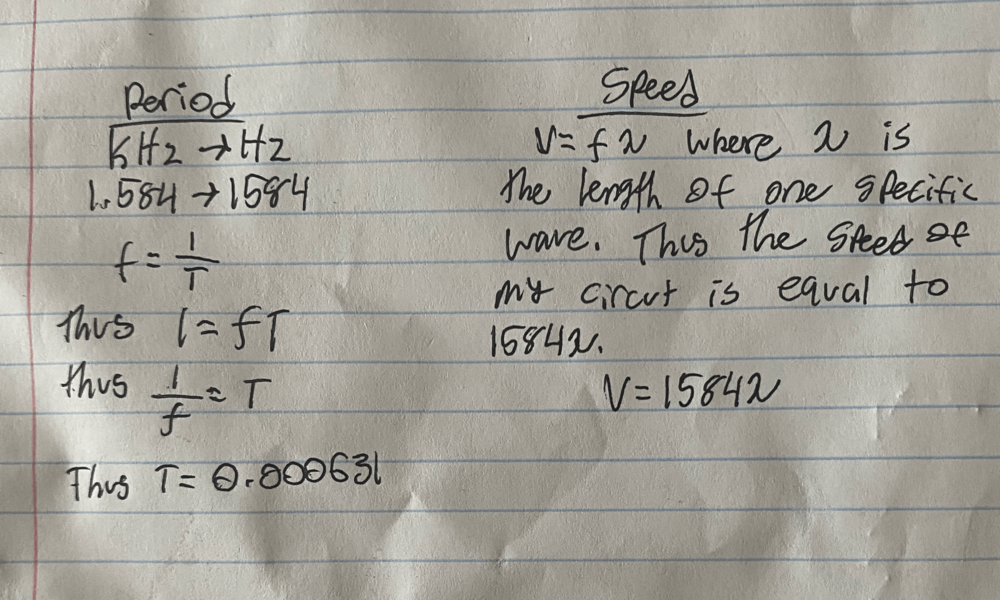 Period
kHz → Hz
1.584 → 1584
f = 1/T
thus 1 = fT
thus 1/f = T
Thus T = 0.000631
Speed
V = fλ where λ is
the length of one specific
wave. Thus the speed of
my circut is equal to
1584λ.
V = 1584λ